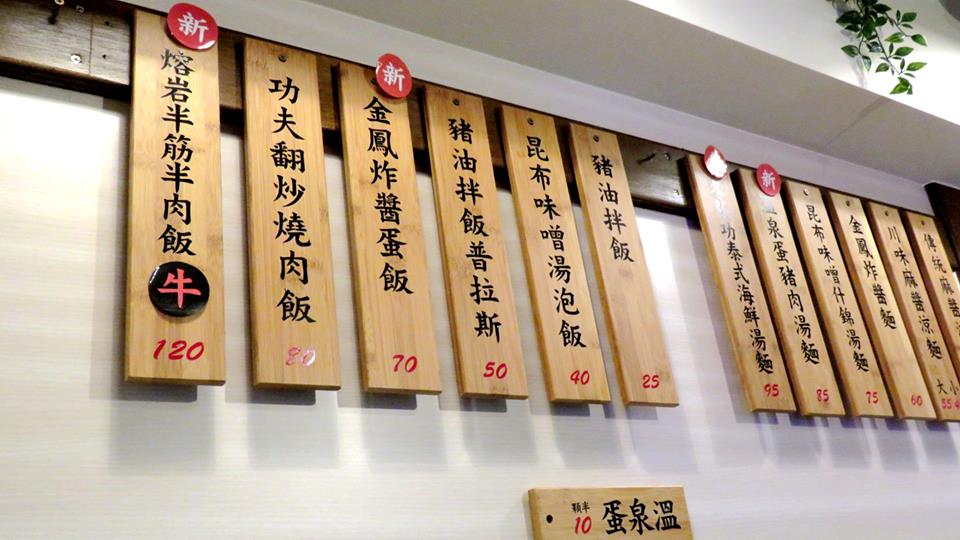 新
熔岩半筋半肉飯
牛
120
功夫翻炒燒肉飯
80
新
金鳳炸醬蛋飯
70
豬油拌飯普拉斯
50
昆布味噌湯泡飯
40
豬油拌飯
25
功泰式海鮮湯麵
95
新
溫泉蛋豬肉湯麵
85
昆布味噌什錦湯麵
75
金鳳炸醬麵
60
川味麻醬涼麵
傳統麻醬涼
大 小
55
顆半
10
蛋泉溫